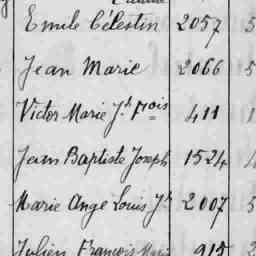 Emile Célestin 2057 5
Jean Marie 2066 5
Victor Marie Jh. frois 411 1
Jean Baptiste Joseph 1524
Marie Ange Louis Jh 2007 5
Julien François Marie 915 2